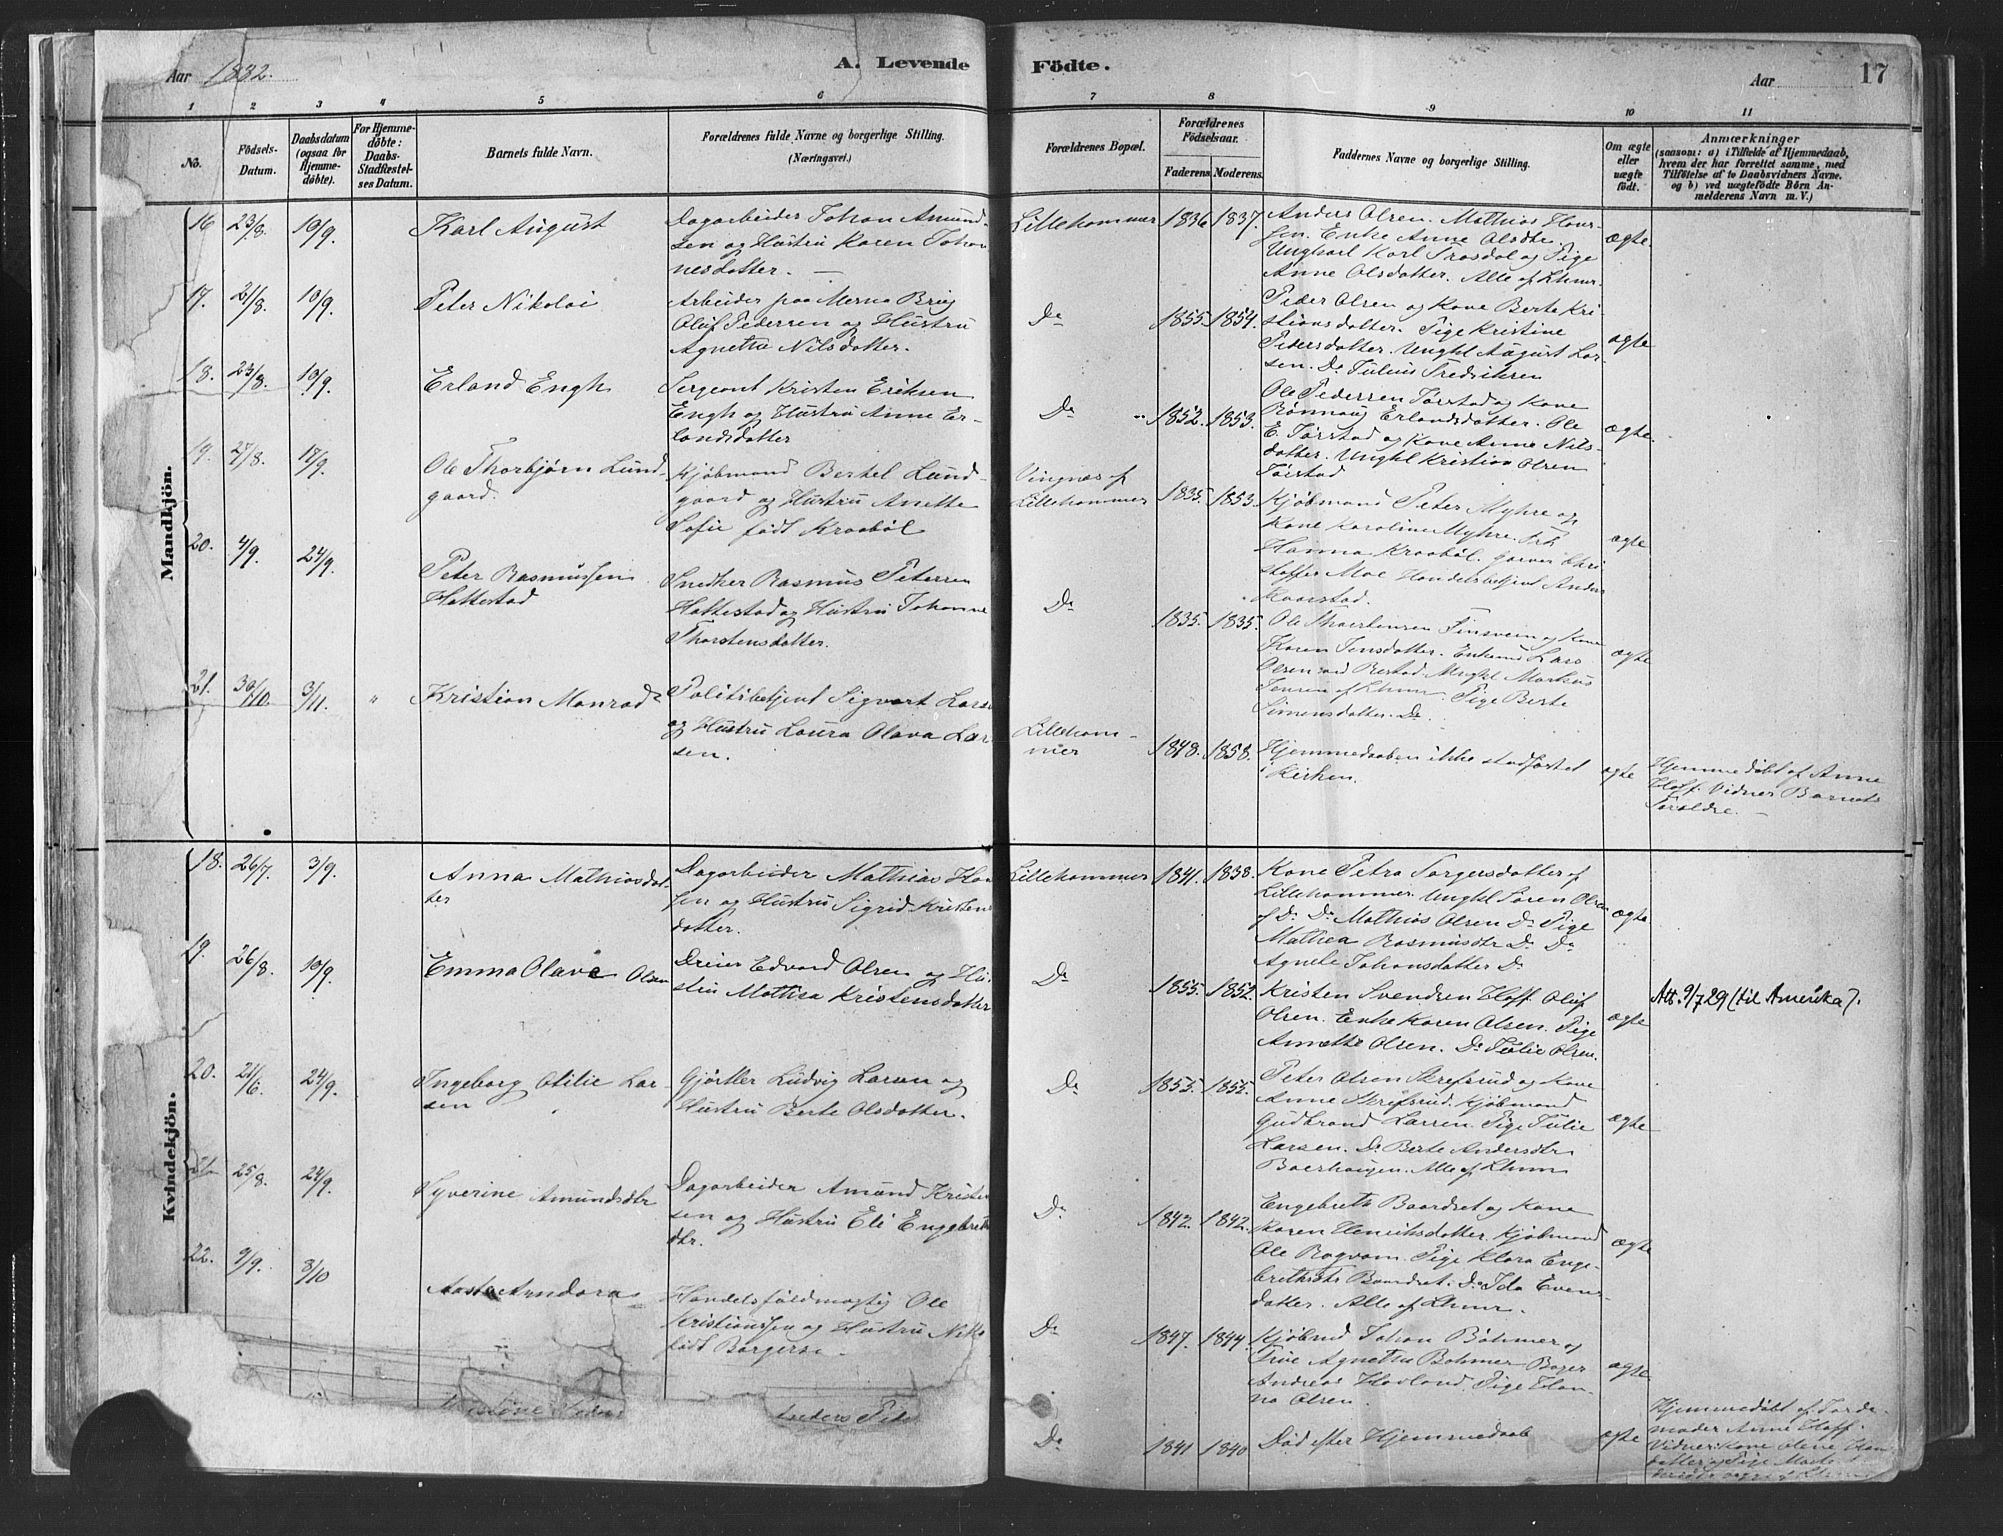 Aar 1882.
A. Levende Födte.
Aar
17
1 2 3 4 5 6 7 8 9 10 11
No.
Födsels-Datum.
Daabsdatum (ogsaa for Hjemme-döbte).
For Hjemme-döbte: Daabs-Stadfæstel-ses Datum.
Barnets fulde Navn.
Forældrenes fulde Navne og borgerlige Stilling. (Næringsvei.)
Forældrenes Bopæl.
Forældrenes Födselsaar.
Faderens. Moderens.
Faddernes Navne og borgerlige Stilling.
Om ægte eller uægte födt.
Anmærkninger
(saasom: a) i Tilfælde af Hjemmedaab, hvem der har forrettet samme, med Tilföielse af to Daabsvidners Navne. og b) ved uægtefödte Börn An-melderens Navn m. V.)
Mandkjön.
16 23/8. 10/9. Karl August
Dagarbeider Johan Amund-
sen og Hustru Karen Johan
nesdatter. —
Lillehammer 1836 1837.
Anders Olsen. Mathias Han-
sen. Enke Anne Olsdtr.
Ungkarl Karl Frosdal og Pige
Anne Olsdatter. Alle af Lhmr.
ægte.
17. 21/8. 10/9. Peter Nikolai
Arbeider paa Mesna Brug
Oluf Pedersen og Hustru
Agnethe Nilsdatter.
Do 1855. 1854.
Peder Olsen og Kone Berte Kri
stiansdatter. Pige Kristine
Pedersdatter. Ungkl August Lar-
sen. Do Julius Fredriksen
ægte
18. 23/8. 10/9. Erland Engh
Sergeant Kristen Eriksen
Engh og Hustru Anne Er-
landsdatter
Do 1852. 1853.
Ole Pedersen Jørstad og Kone
Rønnaug Erlandsdatter. Ole
E. Jørstad og Kone Anne Nils-
datter. Ungkl Kristian Olsen
Jørstad
ægte.
19. 27/8. 17/9. Ole Thorbjørn Lund-
gaard.
Kjøbmand Bertel Lund-
gaard og Hustru Anette
Sofie født Kraabøl
Vingnæs af
Lillehammer 1835. 1853.
Kjøbmand Peter Myhre og
Kone Karoline Myhre. Frk
Hanna Kraabøl. Garver Chri
stoffer Moe Handelsbetjent Anders
Kaarstad.
ægte
20. 4/9. 24/9. Peter Rasmussen
Hattestad
Snedker Rasmus Petersen
Hattestad og Hustru Johanne
Thorstensdatter.
Do 1835. 1835.
Ole Thorstensen Finsveen og Kone
Karen Jensdatter. Enkemd Lars
Olsen Bestad Ungkl Markus
Jensen af Lhmr. Pige Berte
Simensdatter. Do.
ægte
21. 30/10. 3/11. " Kristian Monrad
Politibetjent Sigvart Larse
og Hustru Laura Olava Lar
sen.
Lilleham-
mer 1848. 1858.
Hjemmedaaben ikke stadfæstet
i Kirken.
ægte
Hjemmedøbt af Anne
Hoff. Vidner Barnets
Forældre. —
Kvindekjön.
18. 26/7. 3/9. Anna Mathiasdat-
ter
Dagarbeider Mathias Han
sen og Hustru Sigrid Kristens
datter.
Lillehammer 1841. 1838.
Kone Petra Torgersdatter af
Lillehammer. Ungkl Søren Olsen
af Do. Do Mathias Olsen Do Pige
Mathea Rasmusdtr Do. Do
Agnete Johansdatter Do
ægte
19. 26/8. 10/9. Emma Olava Olsen
Dreier Edvard Olsen og Hu-
stru Mathea Kristensdatter
Do 1855. 1852.
Kristen Svendsen Hoff. Oluf
Olsen. Enke Karen Olsen. Pige
Annette Olsen. Do Julie Olsen.
ægte
Att. 9/7 29 (til Amerika).
20. 21/6. 24/9. Ingeborg Otilie Lar-
sen
Gjørtler Ludvig Larsen og
Hustru Berte Olsdatter.
Do 1853. 1855.
Peter Olsen Skrefsrud og Kone
Anne Skrefsrud. Kjøbmand
Gudbrand Larsen. Pige Julie
Larsen. Do Berte Andersdtr
Baarhaugen. Alle af Lhmr
ægte
21. 25/8. 24/9. Syverine Amundsdtr
Dagarbeider Amund Krist
sen og Hustru Eli Engebrets
dtr.
Do 1842. 1842.
Engebreth Baardset og Kone
Karen Henriksdatter. Kjøbmand
Ole Rogvam. Pige Klara Enge-
brethsdtr Baardset. Do Ida Evens-
datter. Alle af Lhmr.
ægte
22. 9/9. 8/10 Aasta Arndora
Handelsfuldmægtig Ole
Kristiansen og Hustru
født Borgersen
Do 1847. 1844.
Kjøbmd Johan Bøhmer og
Frue Agnethe Bøhmer Bager
Andreas Havland. Pige Han-
na Olsen.
ægte
Do 1841 1840
Død efter Hjemmedaab
ægte
Hjemmedøbt af Jorde-
moder Anne Hoff.
Vidner: Kone Oline Han
datter og Pige